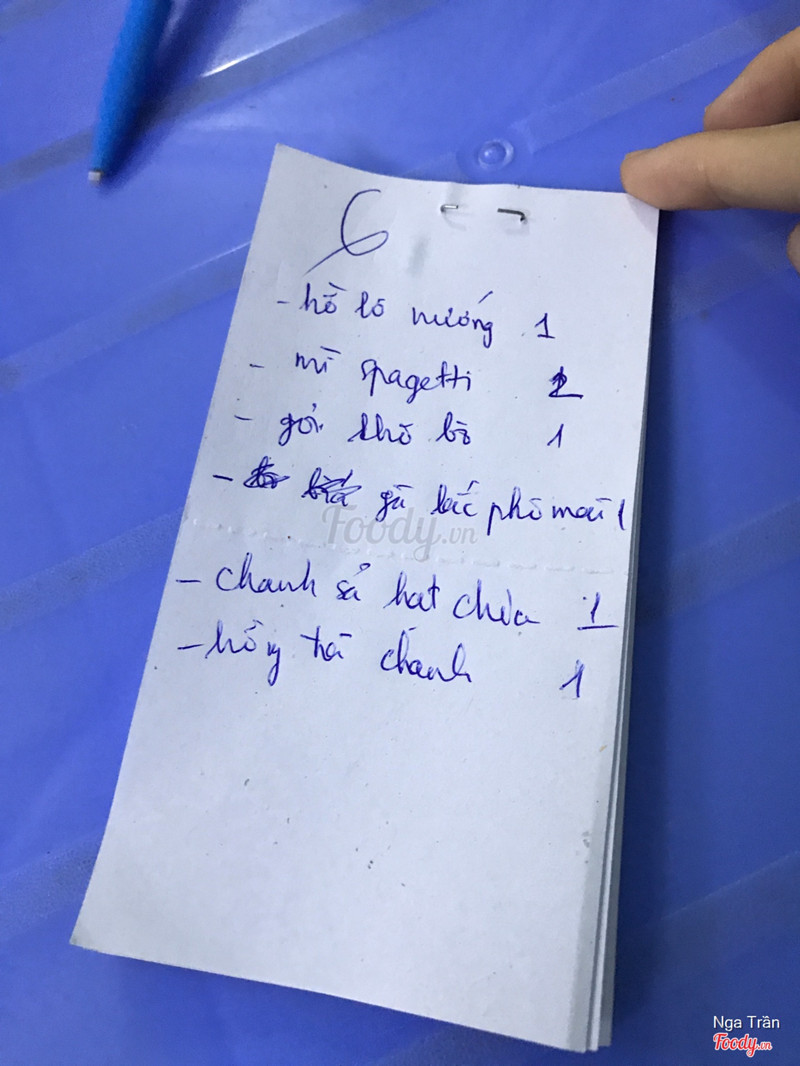 6
- hồ lô nướng 1
- mì spagetti 2
- gỏi khô bò 1
- gà lắc phô mai 1
Foody.vn
- chanh sả hạt chia 1
- hồng trà chanh 1
Nga Trần
Foody.vn